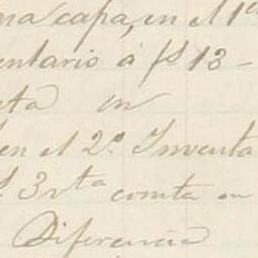 na capa, en el 1º
entario á fs 13 -
ta en
en el 2º Inventa
3 vta consta en
Diferencia